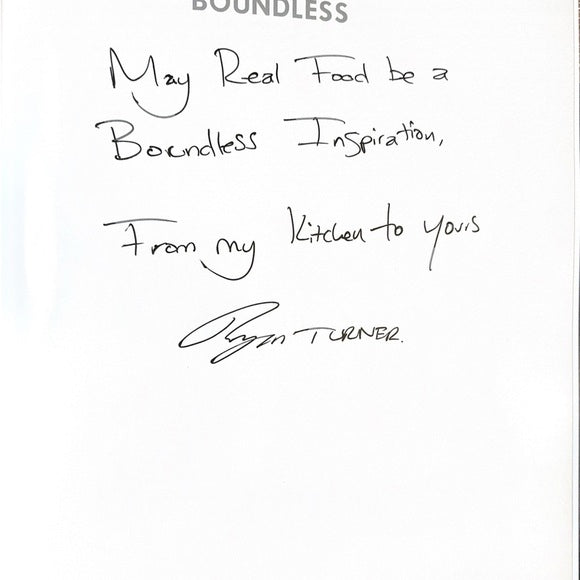 BOUNDLESS
May Real Food be a
Boundless Inspiration,
From my Kitchen to yours
Ryan TURNER.